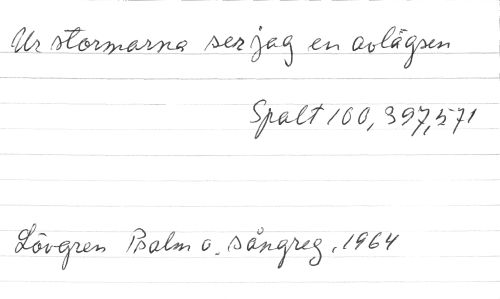 Ur stormarna ser jag en avlägsen
Spalt 100, 397, 571
Lövgren Psalm o. sångreg. 1964